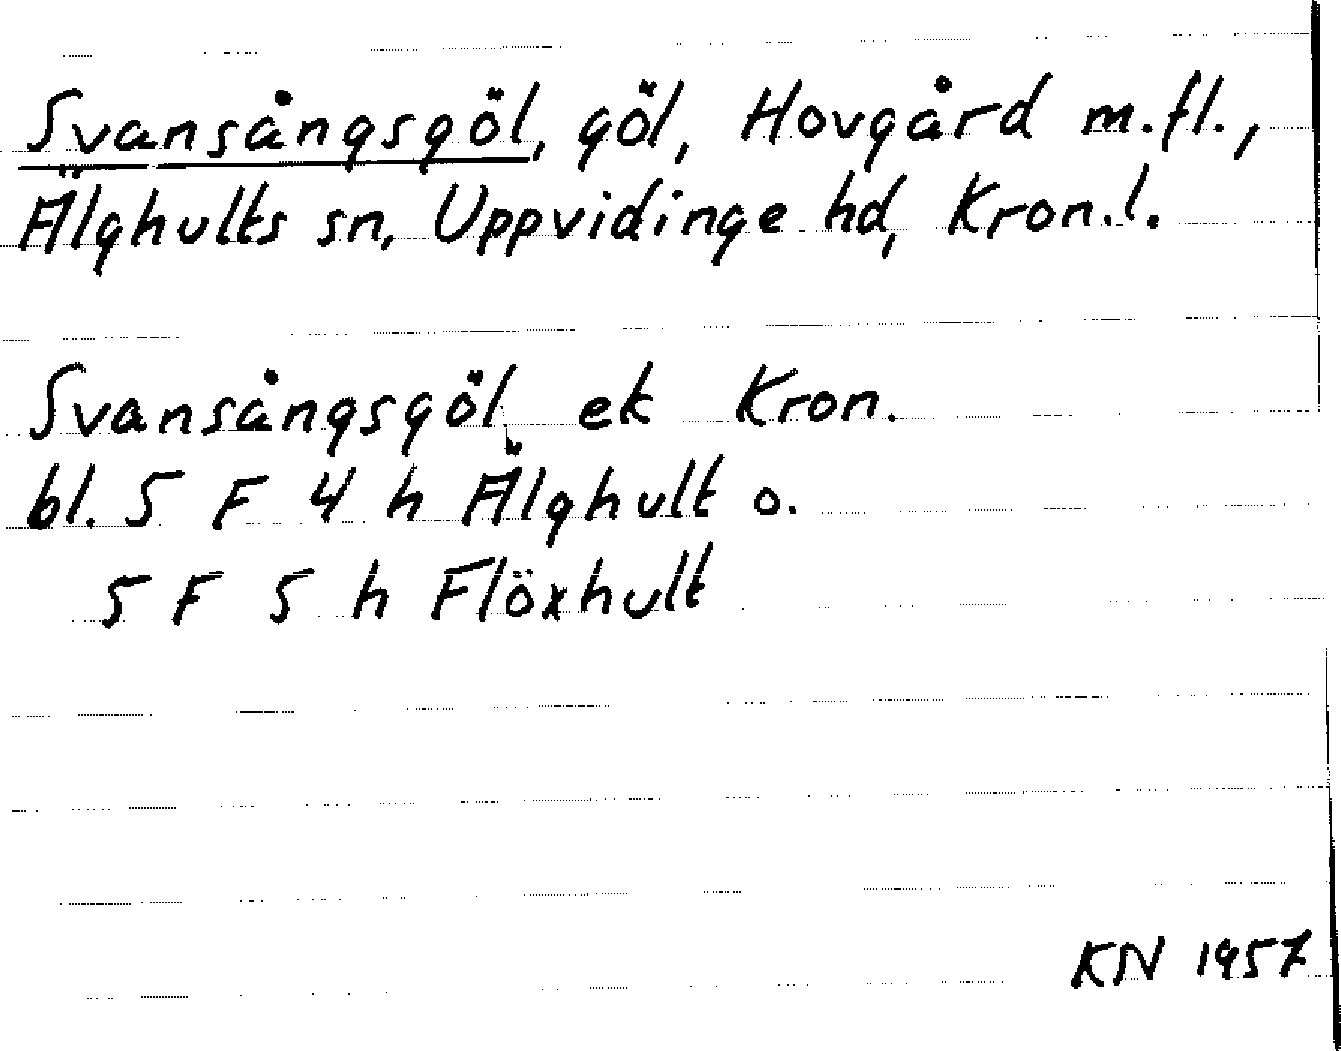 Svansångsgöl, göl, Hovgård m.fl.,
Älghults sn, Uppvidinge hd, Kron.l.
Svansångsgöl ek Kron.
bl. 5 F 4 h Älghult o.
5 F 5 h Flöxhult
KN 1957